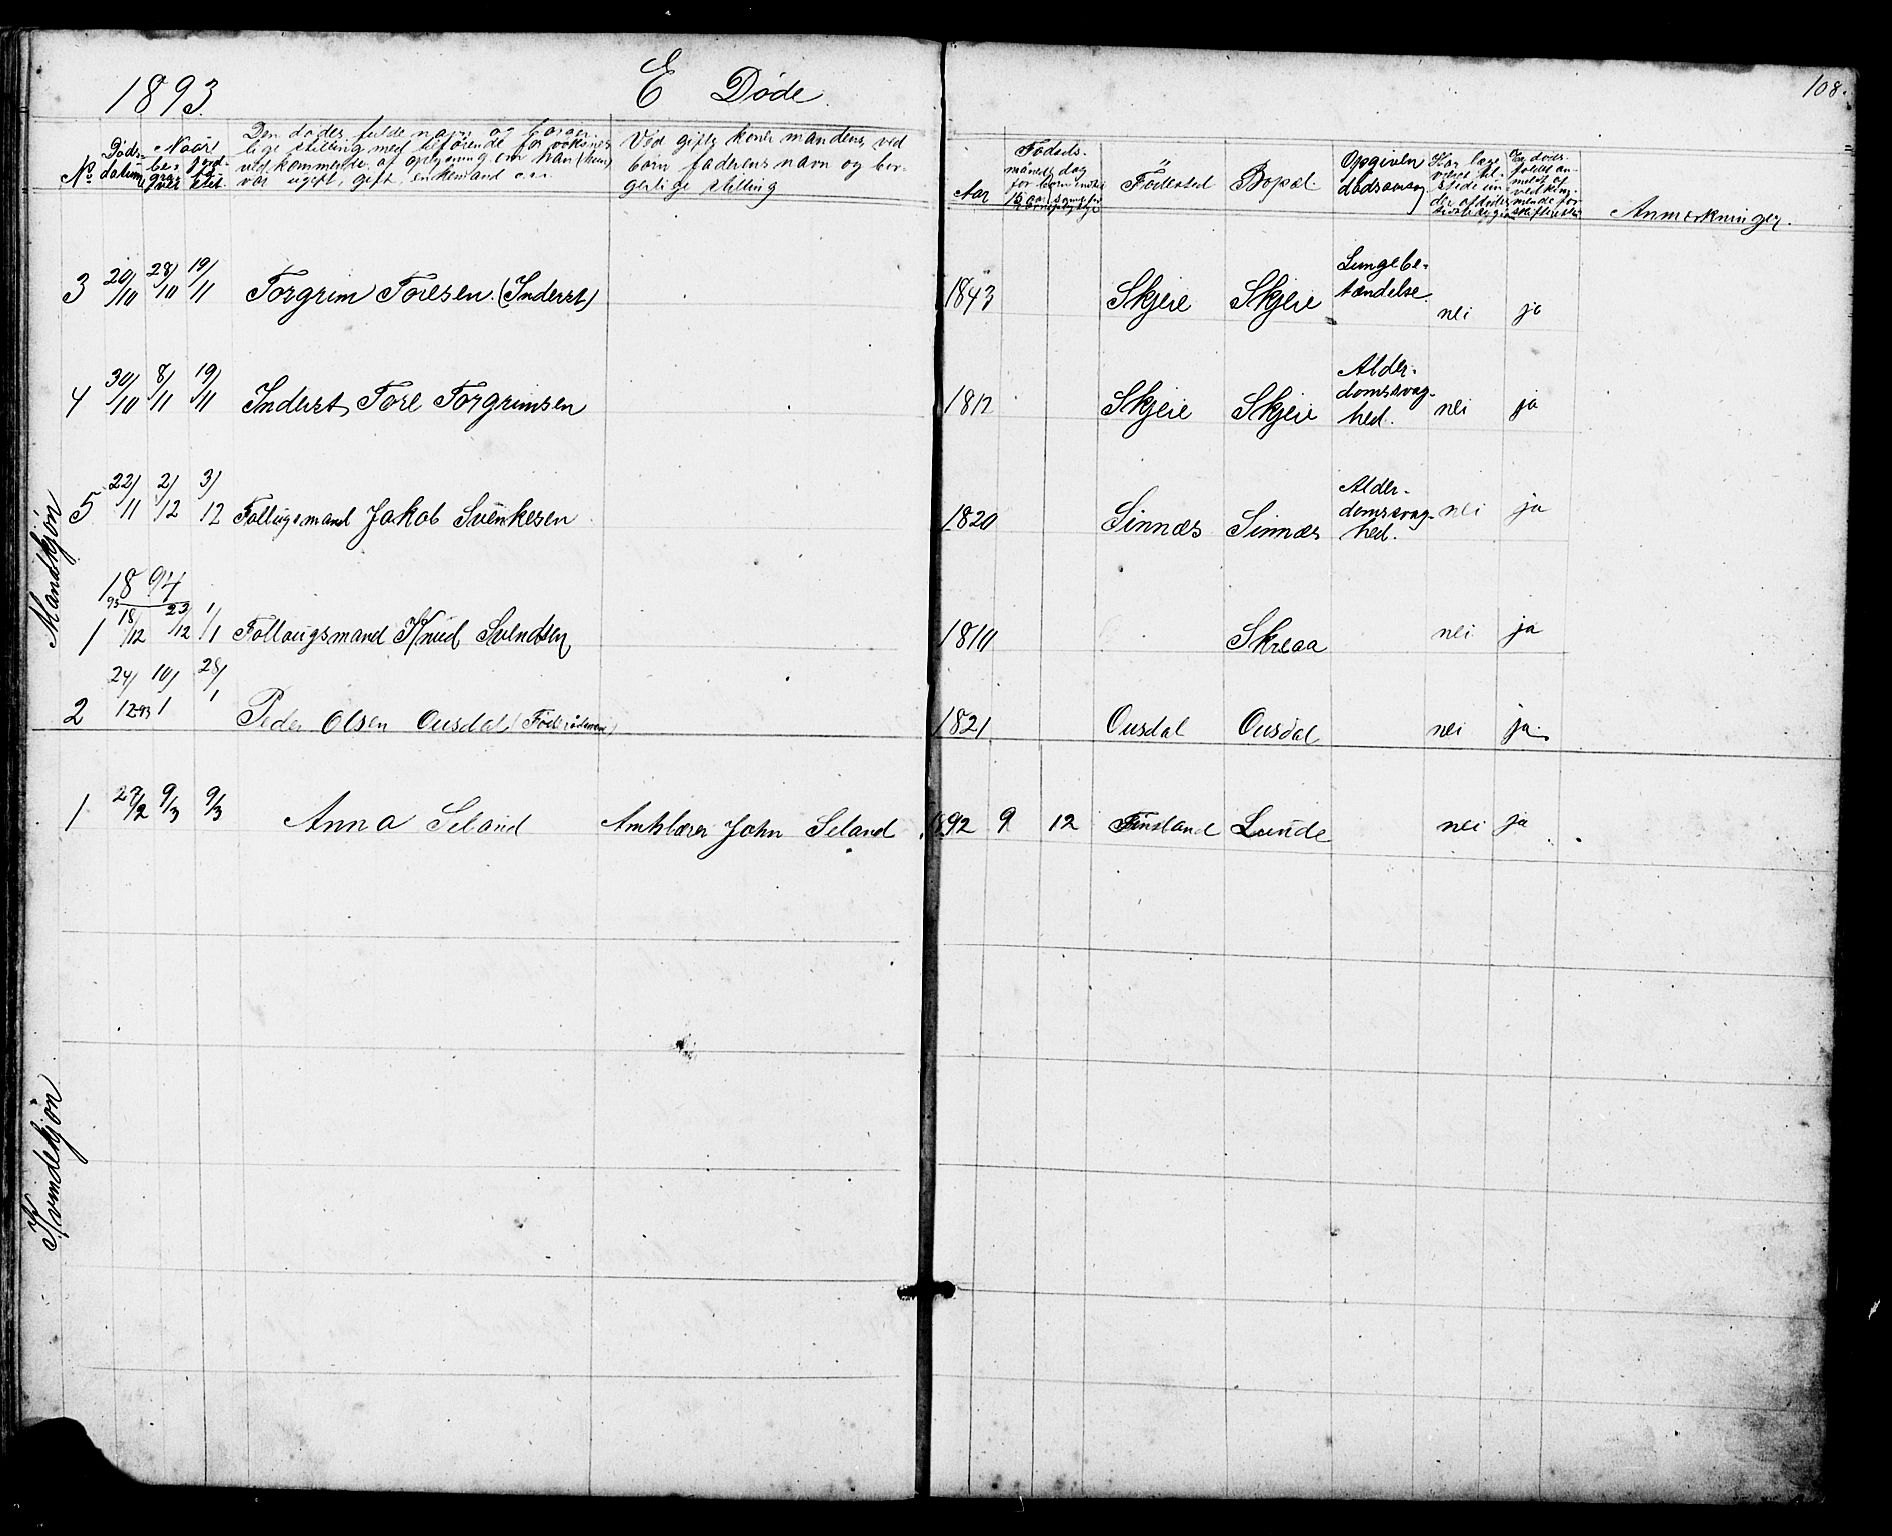 1893.
E Døde.
108.
No
Døds-datum
Naar begravet
jordfæstet
Den dødes fulde navn og borgerlige stilling med tilføiende for voksnes vedkommende af oplysning om han (hun) var ugift, gift, enkemand o.s.
Ved gifte koner mandens, ved børn faderens navn og borgerlige stilling
Aar
Fødsels-måned, dag for børn under
Födested
Bopæl.
Opgiven dødsårsag
Har læge været tilstede
Er dødsfaldet anmeldt af vedkommende for skifteretten
Anmærkninger.
Mandkjøn
3 20/10 28/10 19/11 Torgrim Toresen. (Inderst) 1843 Skjeie Skjeie Lungebe-tændelse nei ja
4 30/10 8/11 19/11 Inderst Tore Torgrimsen 1812 Skjeie Skjeie Alder-domssvag-hed. nei ja
5 22/11 2/12 3/12 Jakob Svenkesen 1820 Sinnæs Sinnæs Alder-domssvag-hed. nei ja
1894
1 93 18/12 23/12 1/1 Follaugsmand Knud Svendsen 1810 Skreaa nei ja
2 24/12 93 10/1 28/1 Peder Olsen Ousdal (Föderådsmand) 1821 Ousdal Ousdal nei ja.
Kvindekjøn
1 27/2 9/3 9/3 Anna Seland Amtslærer John Seland 1892 9 12 Finsland Lunde nei ja